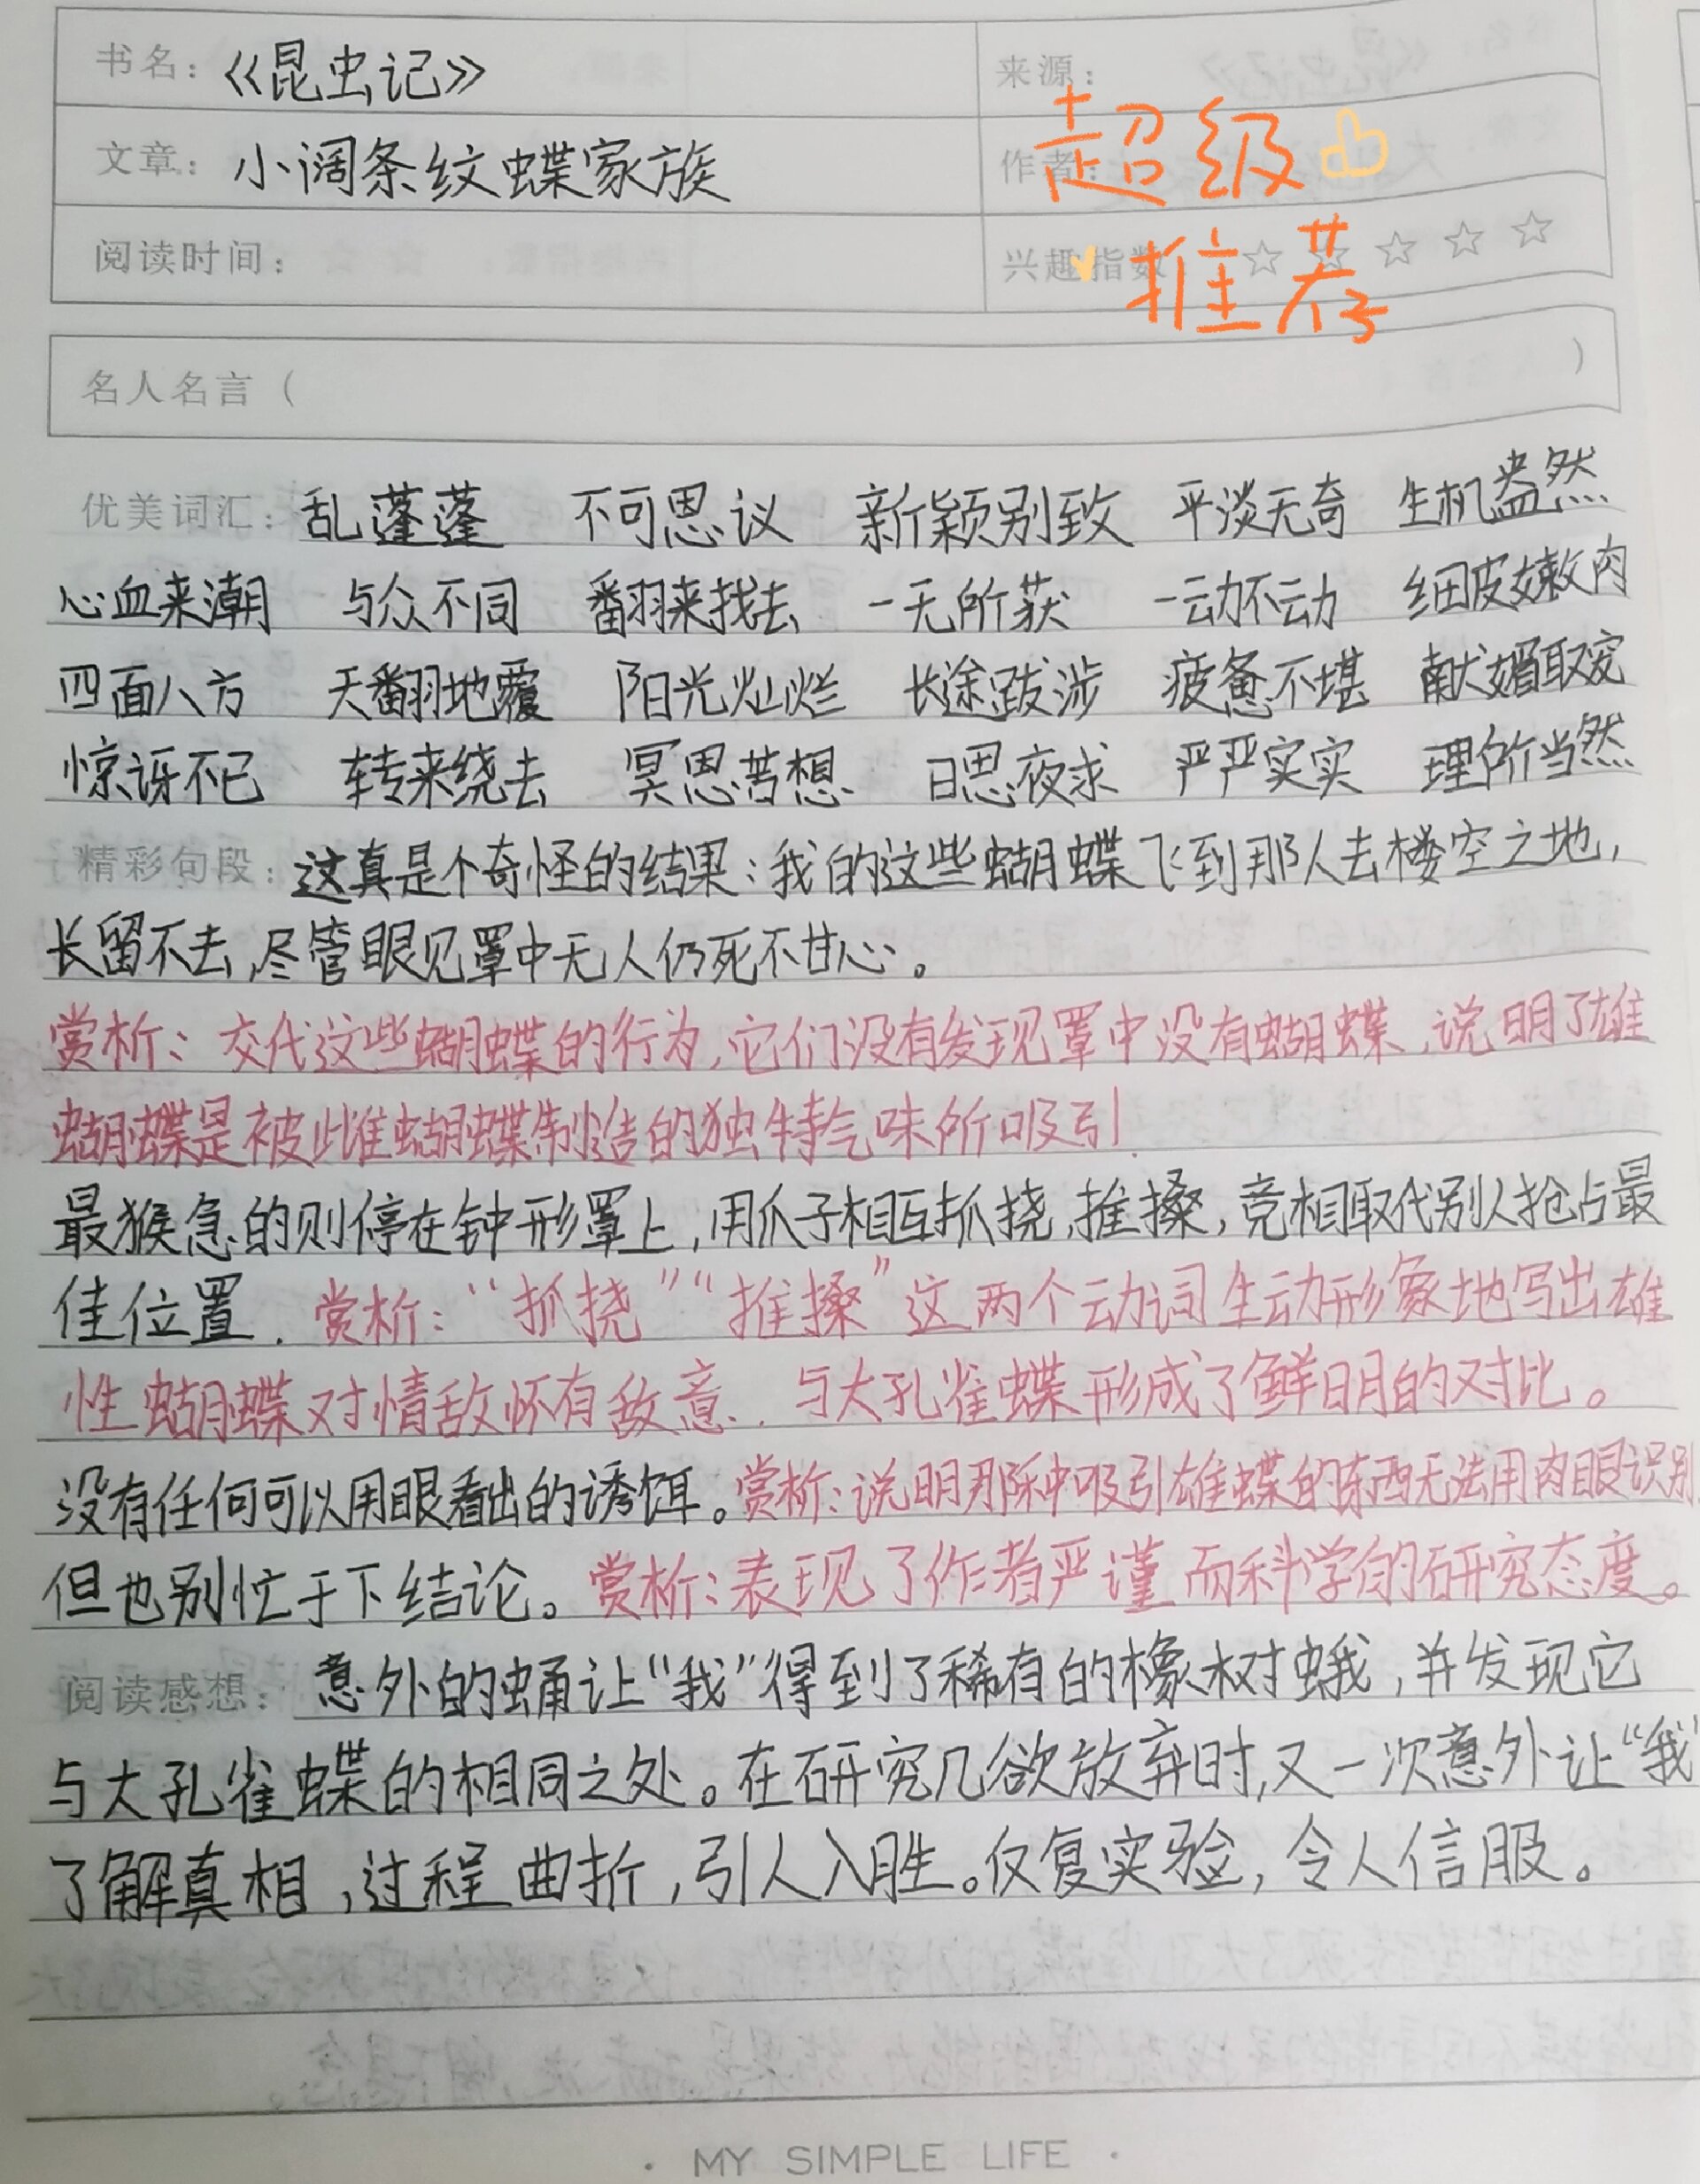 书名：《昆虫记》
来源：
文章：小阔条纹蝶家族
作者：
超级
阅读时间：
兴趣指数
推荐
名人名言（ ）
优美词汇：乱蓬蓬 不可思议 新颖别致 平淡无奇 生机盎然
心血来潮 与众不同 翻来找去 一无所获 一动不动 细皮嫩肉
四面八方 天翻地覆 阳光灿烂 长途跋涉 疲惫不堪 献媚取宠
惊讶不已 转来绕去 冥思苦想 日思夜求 严严实实 理所当然
精彩句段：这真是个奇怪的结果：我的这些蝴蝶飞到那人去楼空之地，
长留不去，尽管眼见罩中无人仍死不甘心。
赏析：交代这些蝴蝶的行为，它们没有发现罩中没有蝴蝶，说明了雄
蝴蝶是被雌蝴蝶制造的独特气味所吸引.
最猴急的则停在钟形罩上，用爪子相互抓挠，推搡，竞相取代别人抢占最
佳位置. 赏析：“抓挠”“推搡”这两个动词生动形象地写出雄
性蝴蝶对情敌怀有敌意. 与大孔雀蝶形成了鲜明的对比。
没有任何可以用眼看出的诱饵。赏析：说明那种吸引雄蝶的东西无法用肉眼识别
但也别忙于下结论。赏析：表现了作者严谨而科学的研究态度。
阅读感想：意外的蛹让“我”得到了稀有的橡树蛾，并发现它
与大孔雀蝶的相同之处。在研究几欲放弃时，又一次意外让“我”
了解真相，过程曲折，引人入胜。反复实验，令人信服。
· MY SIMPLE LIFE ·